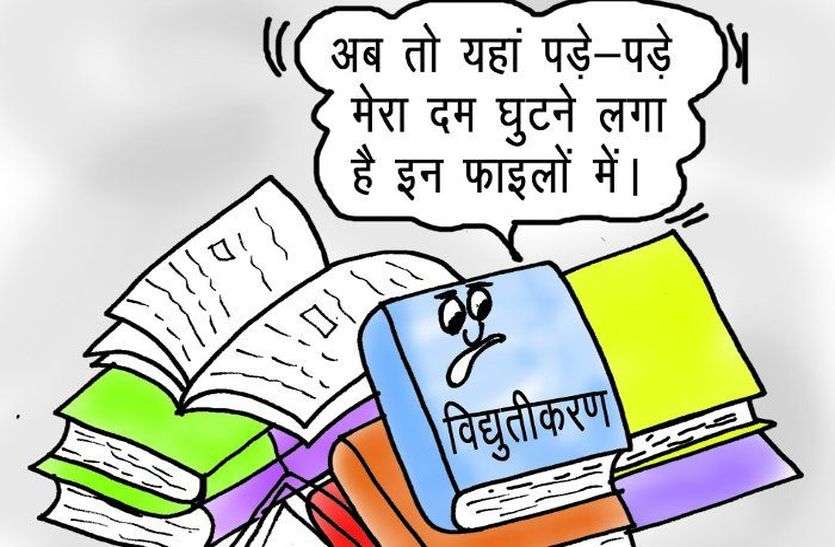 अब तो यहां पड़े–पड़े
मेरा दम घुटने लगा
है इन फाइलों में।
विद्युतीकरण